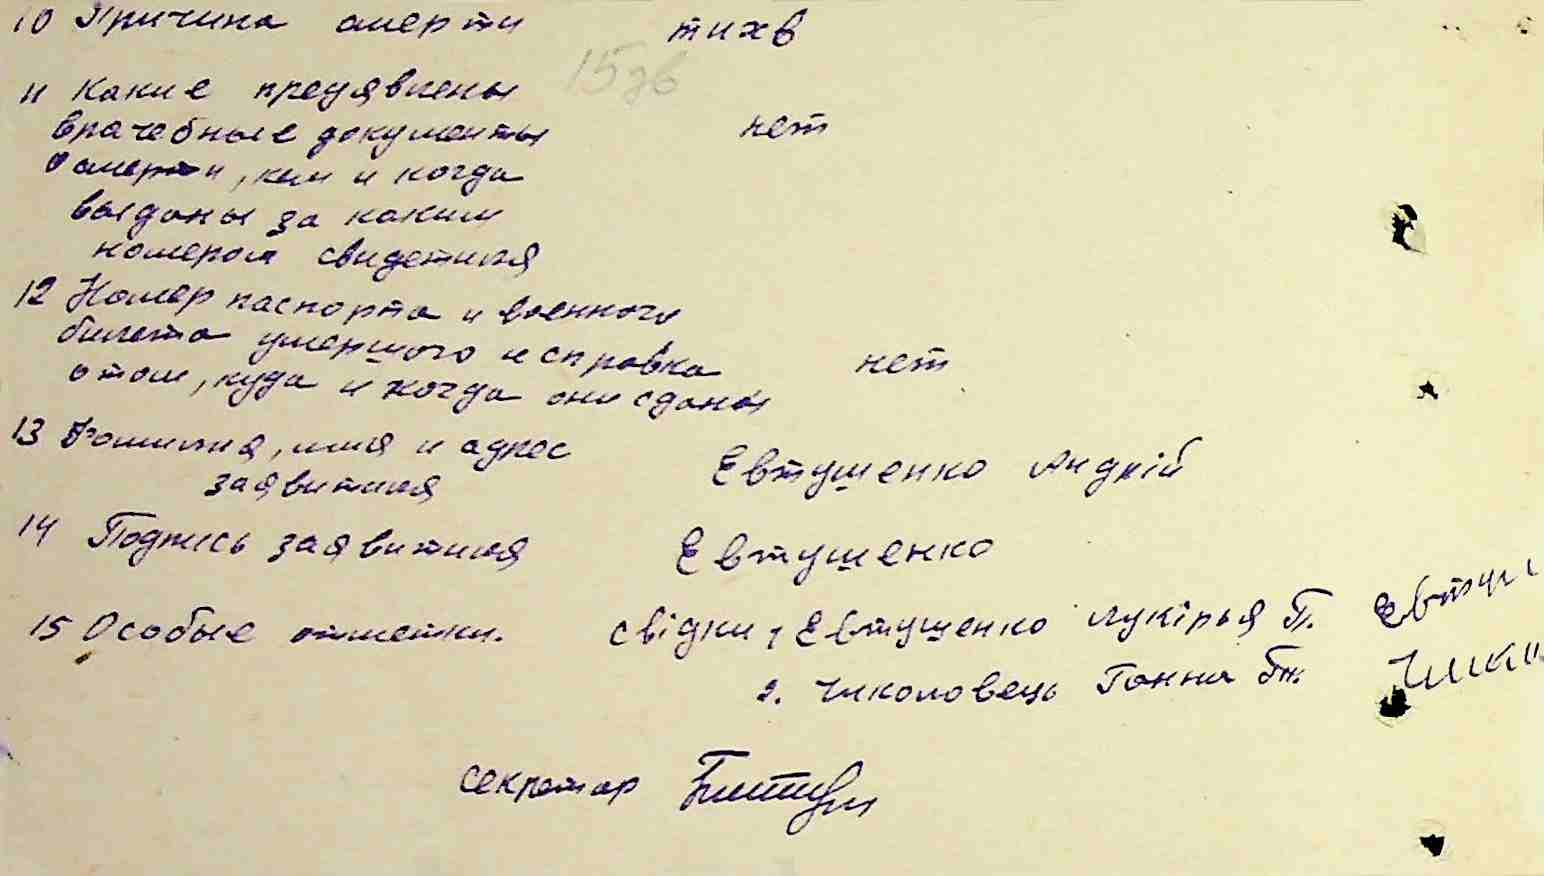 10 Причина смерти тихв
15зв
11 Какие предявлены
врачебные документы нет
о смерти, кем и когда
выданы за каким
номером свидетиля
12 Номер паспорта и военного
билета умершого и справка нет
о том, куда и когда они сданы
13 Фамилия, имя и адрес
заявитиля Евтушенко Андрій
14 Подпись заявитиля Евтушенко
15 Особые отметки. свідки 1 Евтушенко Лукірья П. Евтуш
2. Чиколовець Ганна Чико
секретар